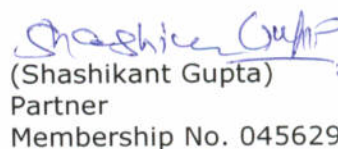 Shashikant Gupta
(Shashikant Gupta)
Partner
Membership No. 045629